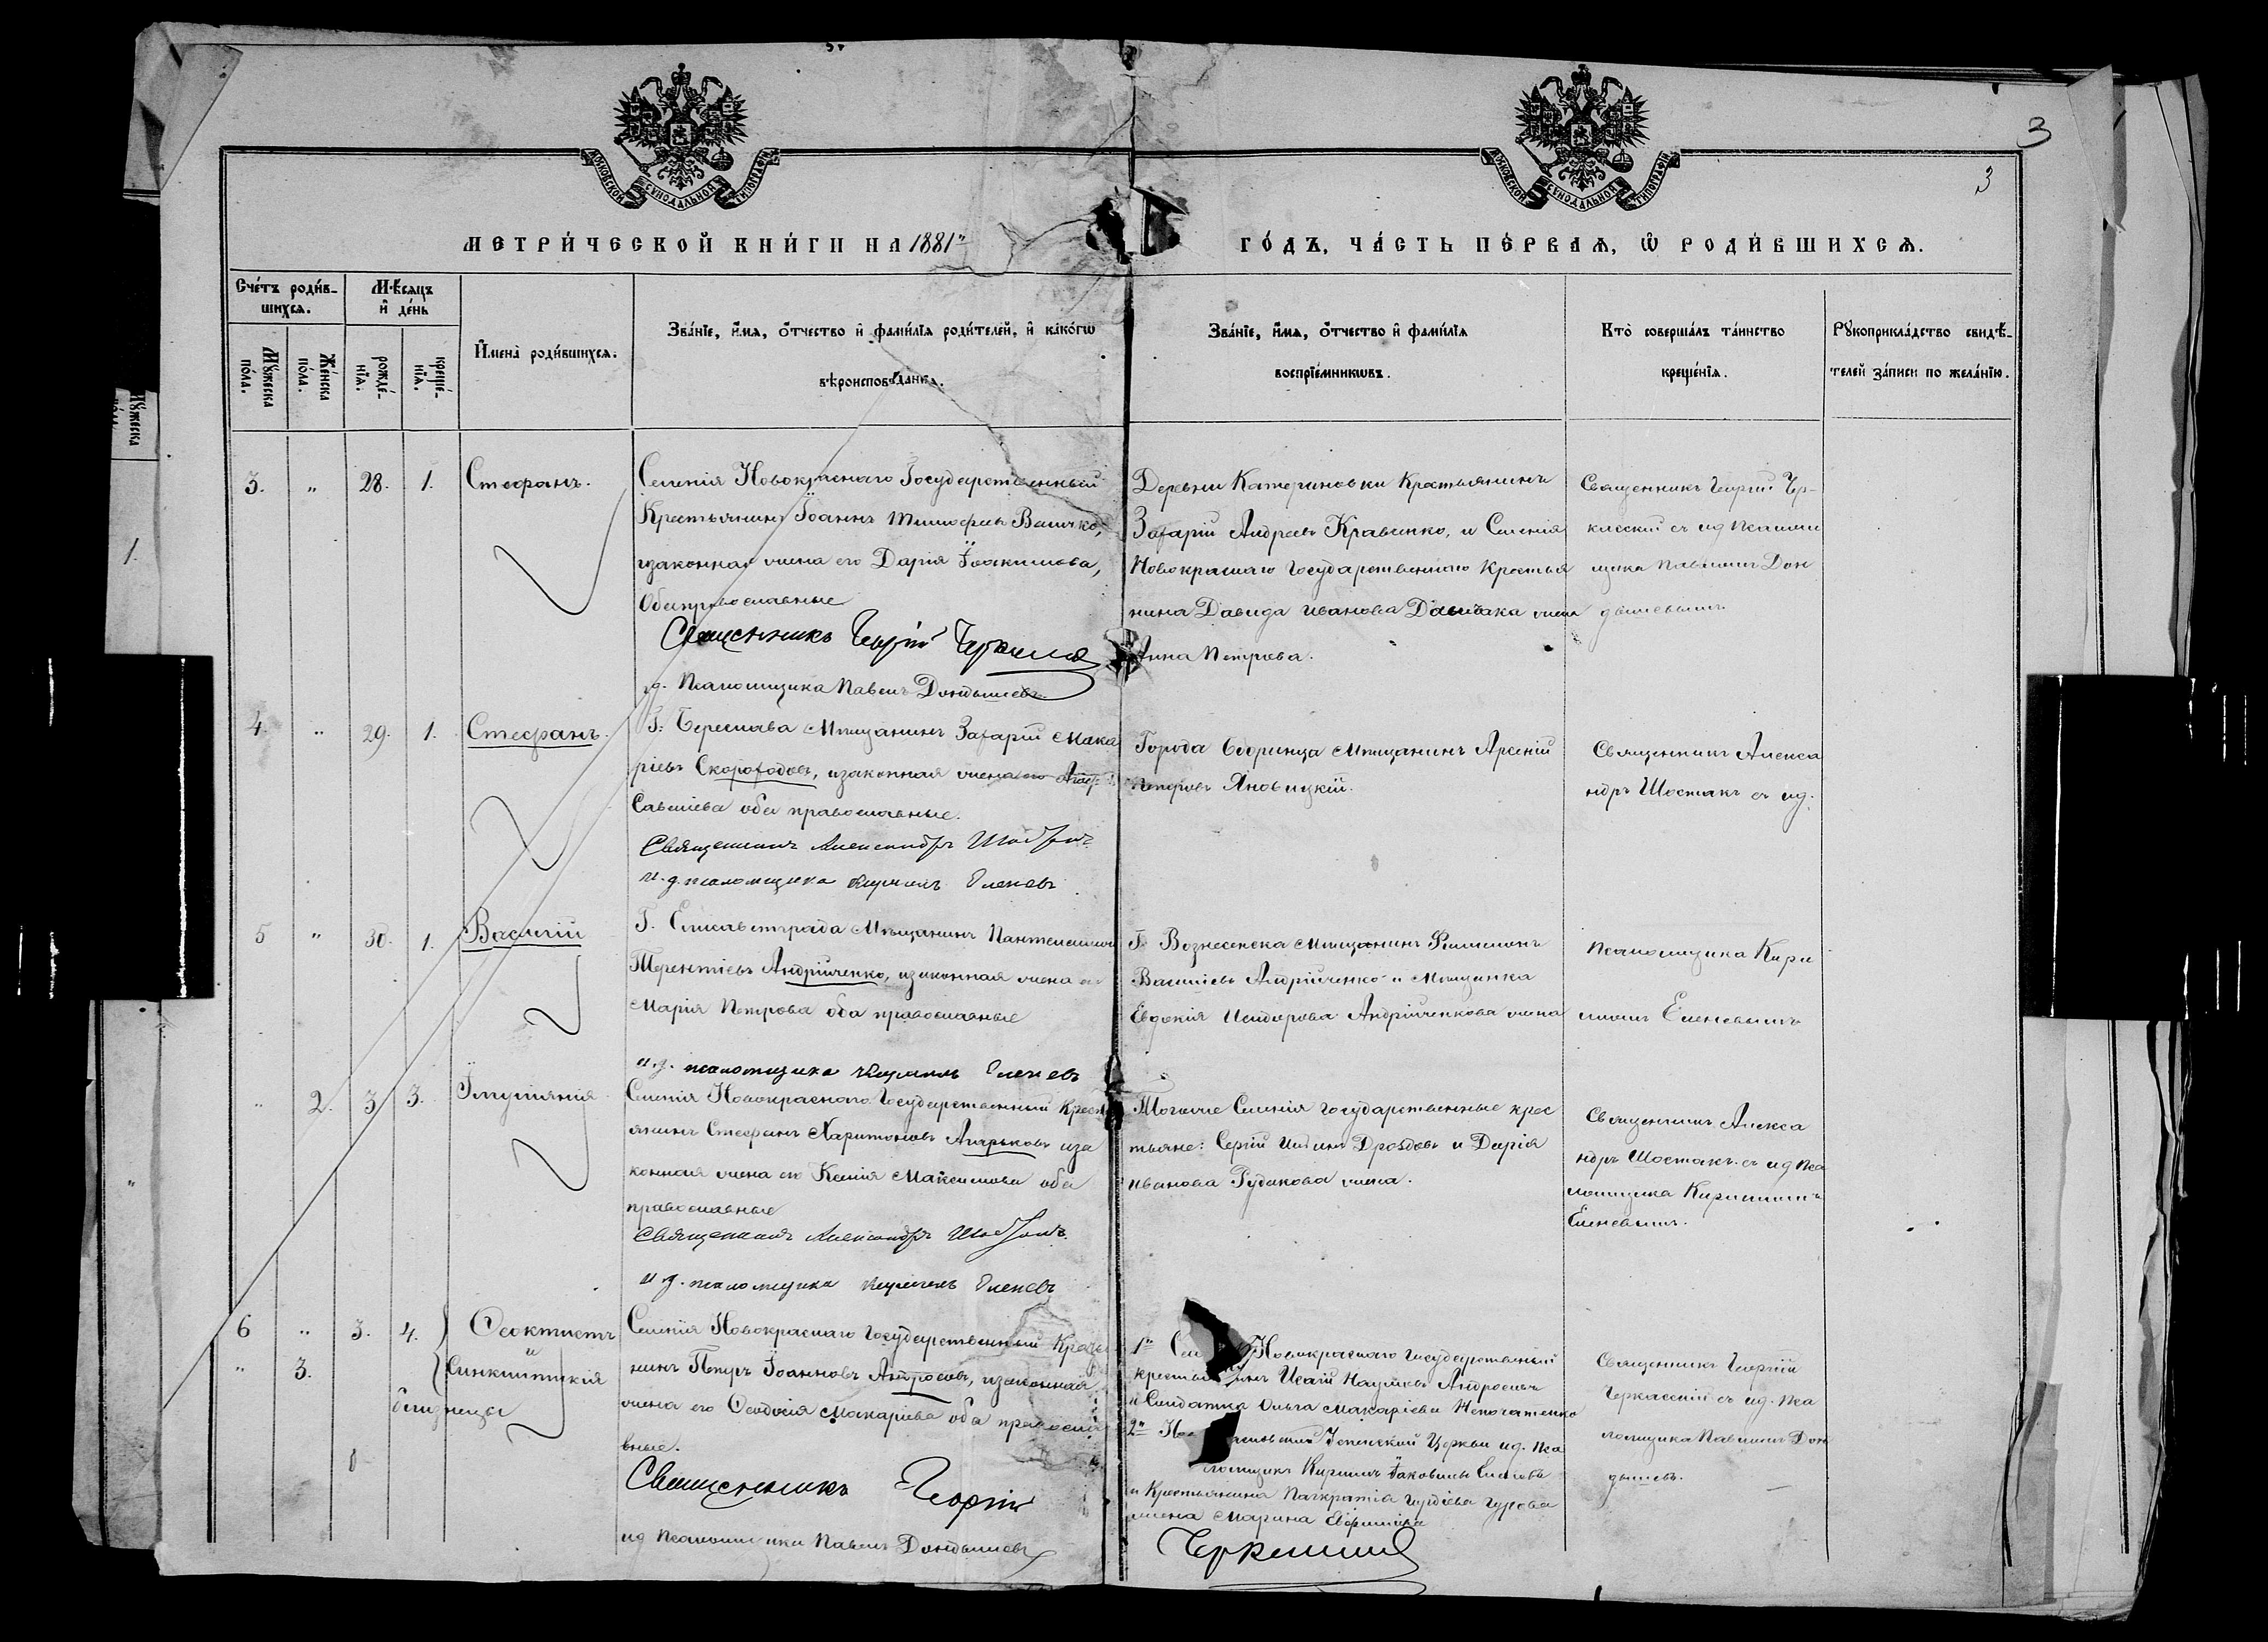 3
3
МОСКОВСКОЙ СѴНОДАЛЬНОЙ ТИПОГРАФІИ
МОСКОВСКОЙ СѴНОДАЛЬНОЙ ТИПОГРАФІИ
МЕТРИ́ЧЕСКОЙ КНИ́ГИ НА 1881 ГО́ДЪ, ЧА́СТЬ ПЕ́РВАѦ, Ѡ РОДИ́ВШИХСѦ.
Сче́тъ роди́в-
шихсѧ.
Мѣ́сѧцъ
и де́нь
Мꙋ́жеска
по́ла.
Же́нска
по́ла.
рожде́-
нїѧ.
креще́-
нїѧ.
Имена̀ роди́вшихсѧ.
Зва́нїе, и́мѧ, о́тчество и фами́лїѧ роди́телей, и како́гѡ
вѣроисповѣ́данїѧ.
Зва́нїе, и́мѧ, о́тчество и фами́лїѧ
воспрїе́мникѡвъ.
Кто̀ соверша́лъ та́инство
креще́нїѧ.
Рꙋкоприкла́дство свидѣ́-
телей за́писи по жела́нїю.
3. " 28. 1. Стефанъ.
Селенія Новокраснаго Государственный
Крестьянинъ Іоаннъ Тимофеевъ
изаконная жена его Дарія Іоакимова,
Оба православные
Священникъ Георгій Черкасскій
Псаломщика Павелъ
Деревни Катериновки Крестьянинъ
Захарій Андреевъ Кравченко, и Селенія
Новокраснаго Государственнаго Крестья
нина Давида Иванова жена
Анна Петрова.
Священникъ Георгій Чер-
касскій съ ид Псаломщи
щика Павломъ
4. " 29. 1. Стефанъ.
Г. Береслава Мѣщанинъ Захарій Мака
ріевъ Скороходовъ, изаконная жена его
Савеліева оба православные.
Священникъ Александръ Шостакъ
и. д. псаломщика Кириллъ Еленевъ
Города Бобринца Мѣщанинъ Арсеній
Петровъ Яновицкій.
Священникъ Алекса
ндръ Шостакъ съ ид.
5 " 30. 1. Василій
Г. Елисаветграда Мѣщанинъ Пантелеимонъ
Терентіевъ Андрійченко, изаконная жена его
Марія Петрова оба православные
и. д. псаломщика Кириллъ Еленевъ
Г. Вознесенска Мѣщанинъ Филимонъ
Василіевъ Андрійченко и Мѣщанка
Евдокія Исидорова Андрійченкова жена
Псаломщика Кири
лломъ Еленевымъ
" 2. 3 3.
Селенія Новокраснаго Государственный Крест
янинъ Стефанъ Харитоновъ иза
конная жена его Ксенія Максимова оба
православные
Священникъ Александръ Шостакъ.
и. д. псаломщика Кириллъ Еленевъ
Тогоже Селенія государственные крес
тьяне: Сергій Дроздовъ и Дарія
Иванова Рудакова жена.
Священникъ Алекса
ндръ Шостакъ съ ид Пса
ломщика Кирилломъ
Еленевымъ.
6 " 3. 4. Феоктистъ
" 3. и
Синклитикія
близнецы
Селенія Новокраснаго Государственный Кресть
нинъ Петръ Іоанновъ Андросовъ, изаконная
жена его Феодосія Макаріева оба правосла
вные.
Священникъ Георгій
ид Псаломщика Павелъ
1 Новокраснаго Государственный
Исаій Наумовъ Андросовъ
и Солдатка Ольга Макаріева
2 Успенской Церкви ид. Пса
ломщикъ Кириллъ Іаковлевъ Еленевъ
и Крестьянина Панкратія Гордіева Гурова
жена Марина Ефимова
Черкасскій
Священникъ Георгій
Черкасскій съ ид. Пса
ломщика Павломъ
1.